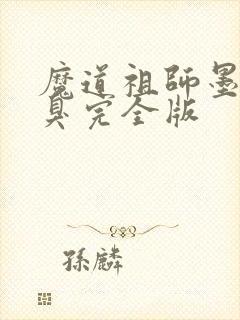 魔道祖師墨
臭完全版
孫麟